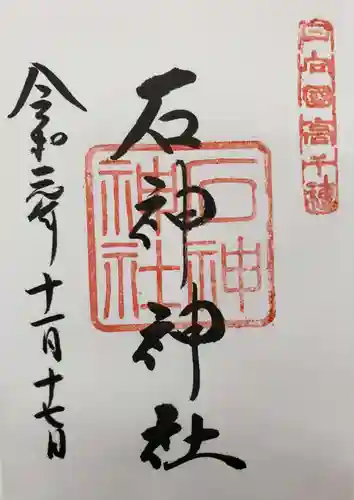 日向國高千穂
石神神社
石神神社
令和二年十一月十七日